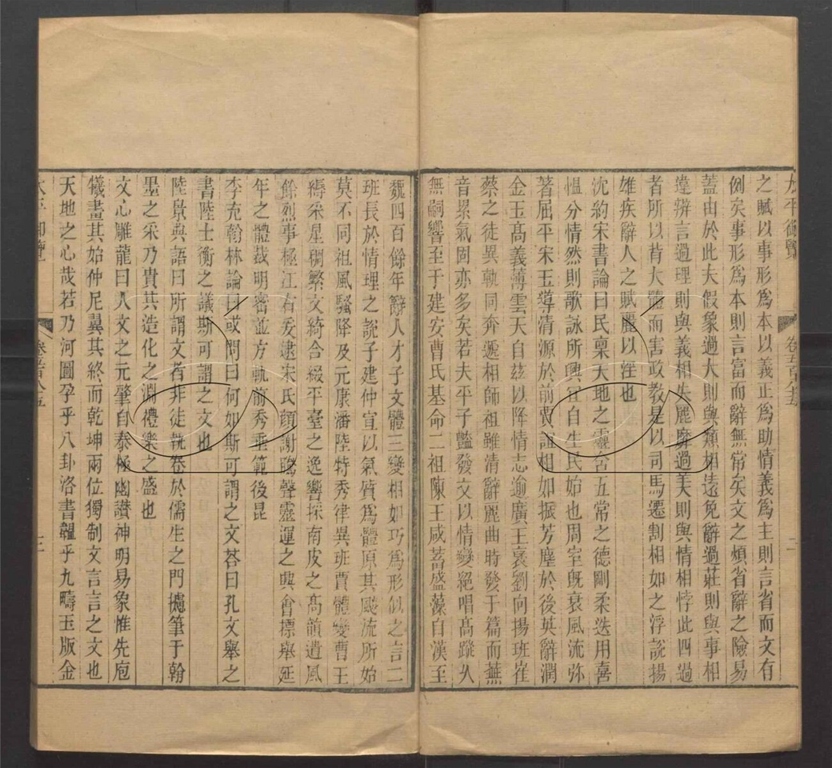 太平御覽
卷五百八十五
二
之賦以事形爲本以義正爲助情義爲主則言省而文有
例矣事形爲本則言富而辭無常矣文之煩省辭之險易
蓋由於此夫假象過大則與類相遠免辭過莊則與事相
違辨言過理則與義相失麗靡過美則與情相悖此四過
者所以背大體而害政教是以司馬遷割相如之浮說揚
雄疾辭人之賦麗以淫也
沈約宋書論曰民稟天地之靈含五常之德剛柔迭用喜
愠分情然則歌詠所興宜自生民始也周室旣衰風流弥
著屈平宋玉導清源於前賈誼相如振芳塵於後英辭潤
金玉高義薄雲天自茲以降情志逾廣王襃劉向揚班崔
蔡之徒異軌同奔遞相師祖雖清辭麗曲時發于篇而蕪
音累氣固亦多矣若夫平子豔發文以情變絕唱高蹤久
無嗣響至于建安曹氏基命二祖陳王咸蓄盛藻自漢至
魏四百餘年辭人才子文體三變相如巧爲形似之言二
班長於情理之說子建仲宣以氣質爲體原其飈流所始
莫不同祖風騷降及元康潘陸特秀律異班賈體變曹王
縟采星稠繁文綺合綴平臺之逸響採南皮之高韻遺風
餘烈事極江右爰逮宋氏顏謝騰聲靈運之興會摽舉延
年之體裁明密竝方軌前秀垂範後昆
李充翰林論曰或問曰何如斯可謂之文荅曰孔文舉之
書陸士衡之議斯可謂之文也
陸景典語曰所謂文者非徒執卷於儒生之門攄筆于翰
墨之采乃貴其造化之淵禮樂之盛也
文心雕龍曰人文之元肇自泰極幽讃神明易象惟先庖
犧畫其始仲尼翼其終而乾坤兩位獨制文言言之文也
天地之心哉若乃河圖孕乎八卦洛書韞乎九疇玉版金
太平御覽
卷五百八十五
三